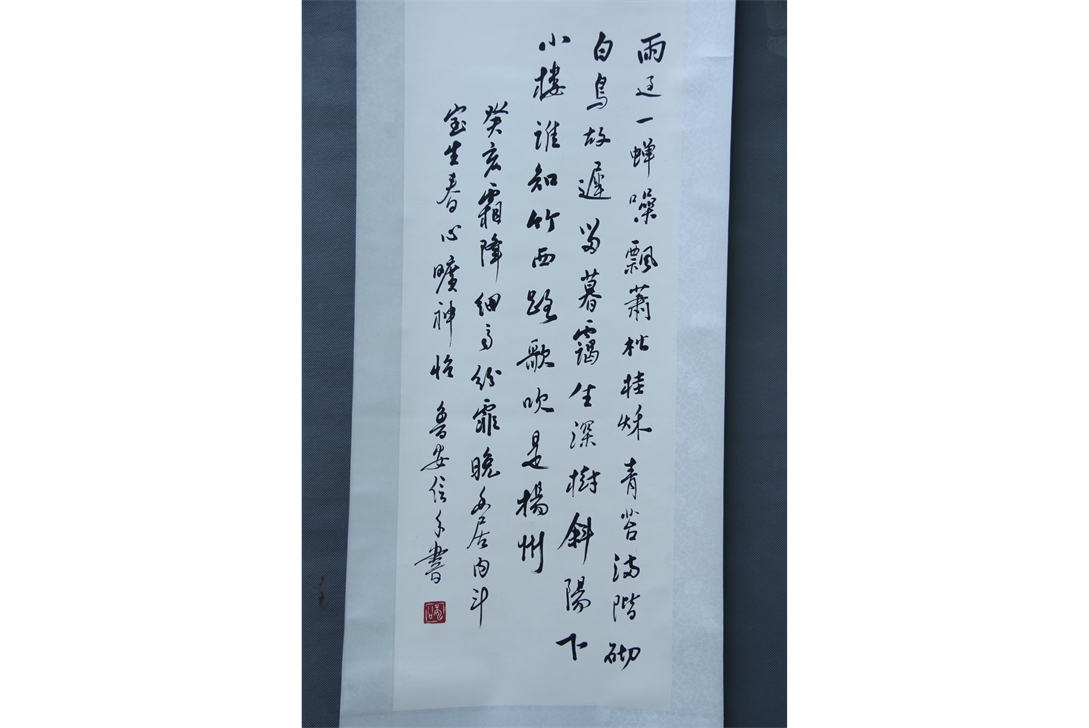 雨过一蟬噪飄蕭松桂秋青苔滿階砌
白鳥故遲留暮靄生深樹斜陽下
小樓誰知竹西路歌吹是楊州
癸亥霜降細雨紛霏晚居内斗
室生春心曠神怡魯安信手書